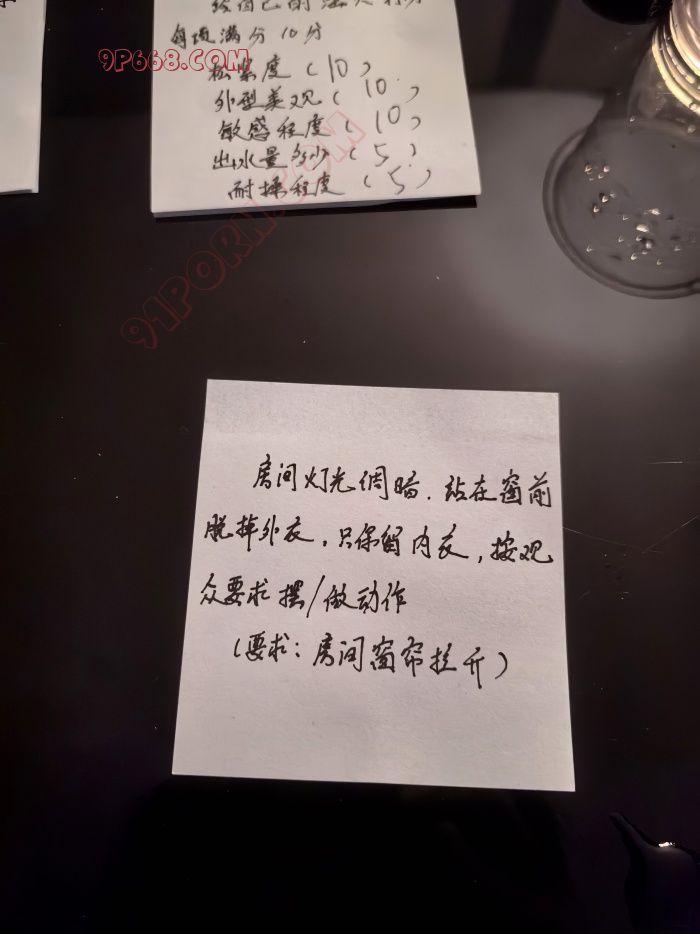 每项满分10分
9P668.COM
松紧度(10)
外型美观(10)
敏感程度(10)
出水量多少(5)
耐操程度(5)
91PORN.COM
房间灯光调暗.站在窗前
脱掉外衣,只保留内衣,按观
众要求摆/做动作
(要求:房间窗帘拉开)